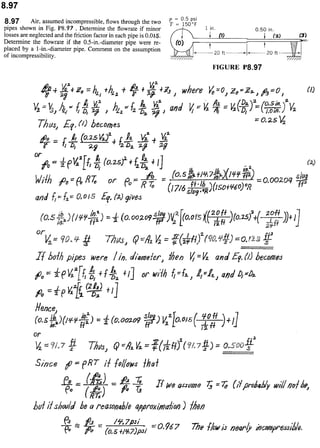 8.97
8.97 Air, assumed incompressible, flows through the two
pipes shown in Fig. P8.97 . Determine the flowrate if minor
losses are neglected and the friction factor in each pipe is 0.015.
Determine the flowrate if the 0.5-in.-diameter pipe were re-
placed by a 1-in.-diameter pipe. Comment on the assumption
of incompressibility.
p = 0.5 psi
T = 150°F
1 in.
0.50 in.
(0)
(1)
(2)
(3)
20 ft
20 ft
FIGURE P8.97
p₀/γ + V₀²/2g + z₀ = h_L1 + h_L2 + p₃/γ + V₃²/2g + z₃ , where V₀=0, z₀=z₃, p₃=0, (1)
V₃=V₂, h_L1 = f₁ l₁/D₁ V₁²/2g , h_L2 = f₂ l₂/D₂ V₂²/2g , and V₁ = V₂ A₂/A₁ = V₂(D₂/D₁)² = (0.5in/1in)² V₂
= 0.25 V₂
Thus, Eq. (1) becomes
p₀/γ = f₁ l₁/D₁ (0.25V₂)²/2g + f₂ l₂/D₂ V₂²/2g + V₂²/2g
or
p₀ = ½ρV₂² [f₁ l₁/D₁ (0.25)² + f₂ l₂/D₂ + 1] (2)
With p₀ = ρ₀RT₀ or ρ₀ = p₀/RT₀ = (0.5 +14.7 lb/in²)(144 in²/ft²) / (1716 ft·lb/slug·°R)(150+460)°R = 0.00209 slug/ft³
and f₁=f₂=0.015 Eq.(2) gives
(0.5 lb/in²)(144 in²/ft²) = ½ (0.00209 slug/ft³) V₂² [0.015 ((20ft / 1/12 ft)(0.25)² + (20ft / 0.5/12 ft)) + 1]
or
V₂ = 90.4 ft/s Thus, Q = A₂V₂ = π/4 (0.5/12 ft)² (90.4 ft/s) = 0.123 ft³/s
If both pipes were 1 in. diameter, then V₁=V₂ and Eq.(1) becomes
p₀ = ½ρV₂² [f₁ l₁/D₁ + f₂ l₂/D₂ + 1] or with f₁=f₂, l₁=l₂, and D₁=D₂
p₀ = ½ρV₂² [f₂ (2l₂)/D₂ + 1]
Hence,
(0.5 lb/in²)(144 in²/ft²) = ½ (0.00209 slug/ft³) V₂² [0.015 (40 ft / 1/12 ft) + 1]
or
V₂ = 91.7 ft/s Thus, Q = A₂V₂ = π/4 (1/12 ft)² (91.7 ft/s) = 0.500 ft³/s
Since p = ρRT it follows that
ρ₃/ρ₀ = (p₃/RT₃)/(p₀/RT₀) = p₃/p₀ T₀/T₃ If we assume T₃ = T₀ (it probably will not be,
but it should be a reasonable approximation) then
ρ₃/ρ₀ ≈ p₃/p₀ = 14.7psi / (0.5+14.7)psi = 0.967 The flow is nearly incompressible.